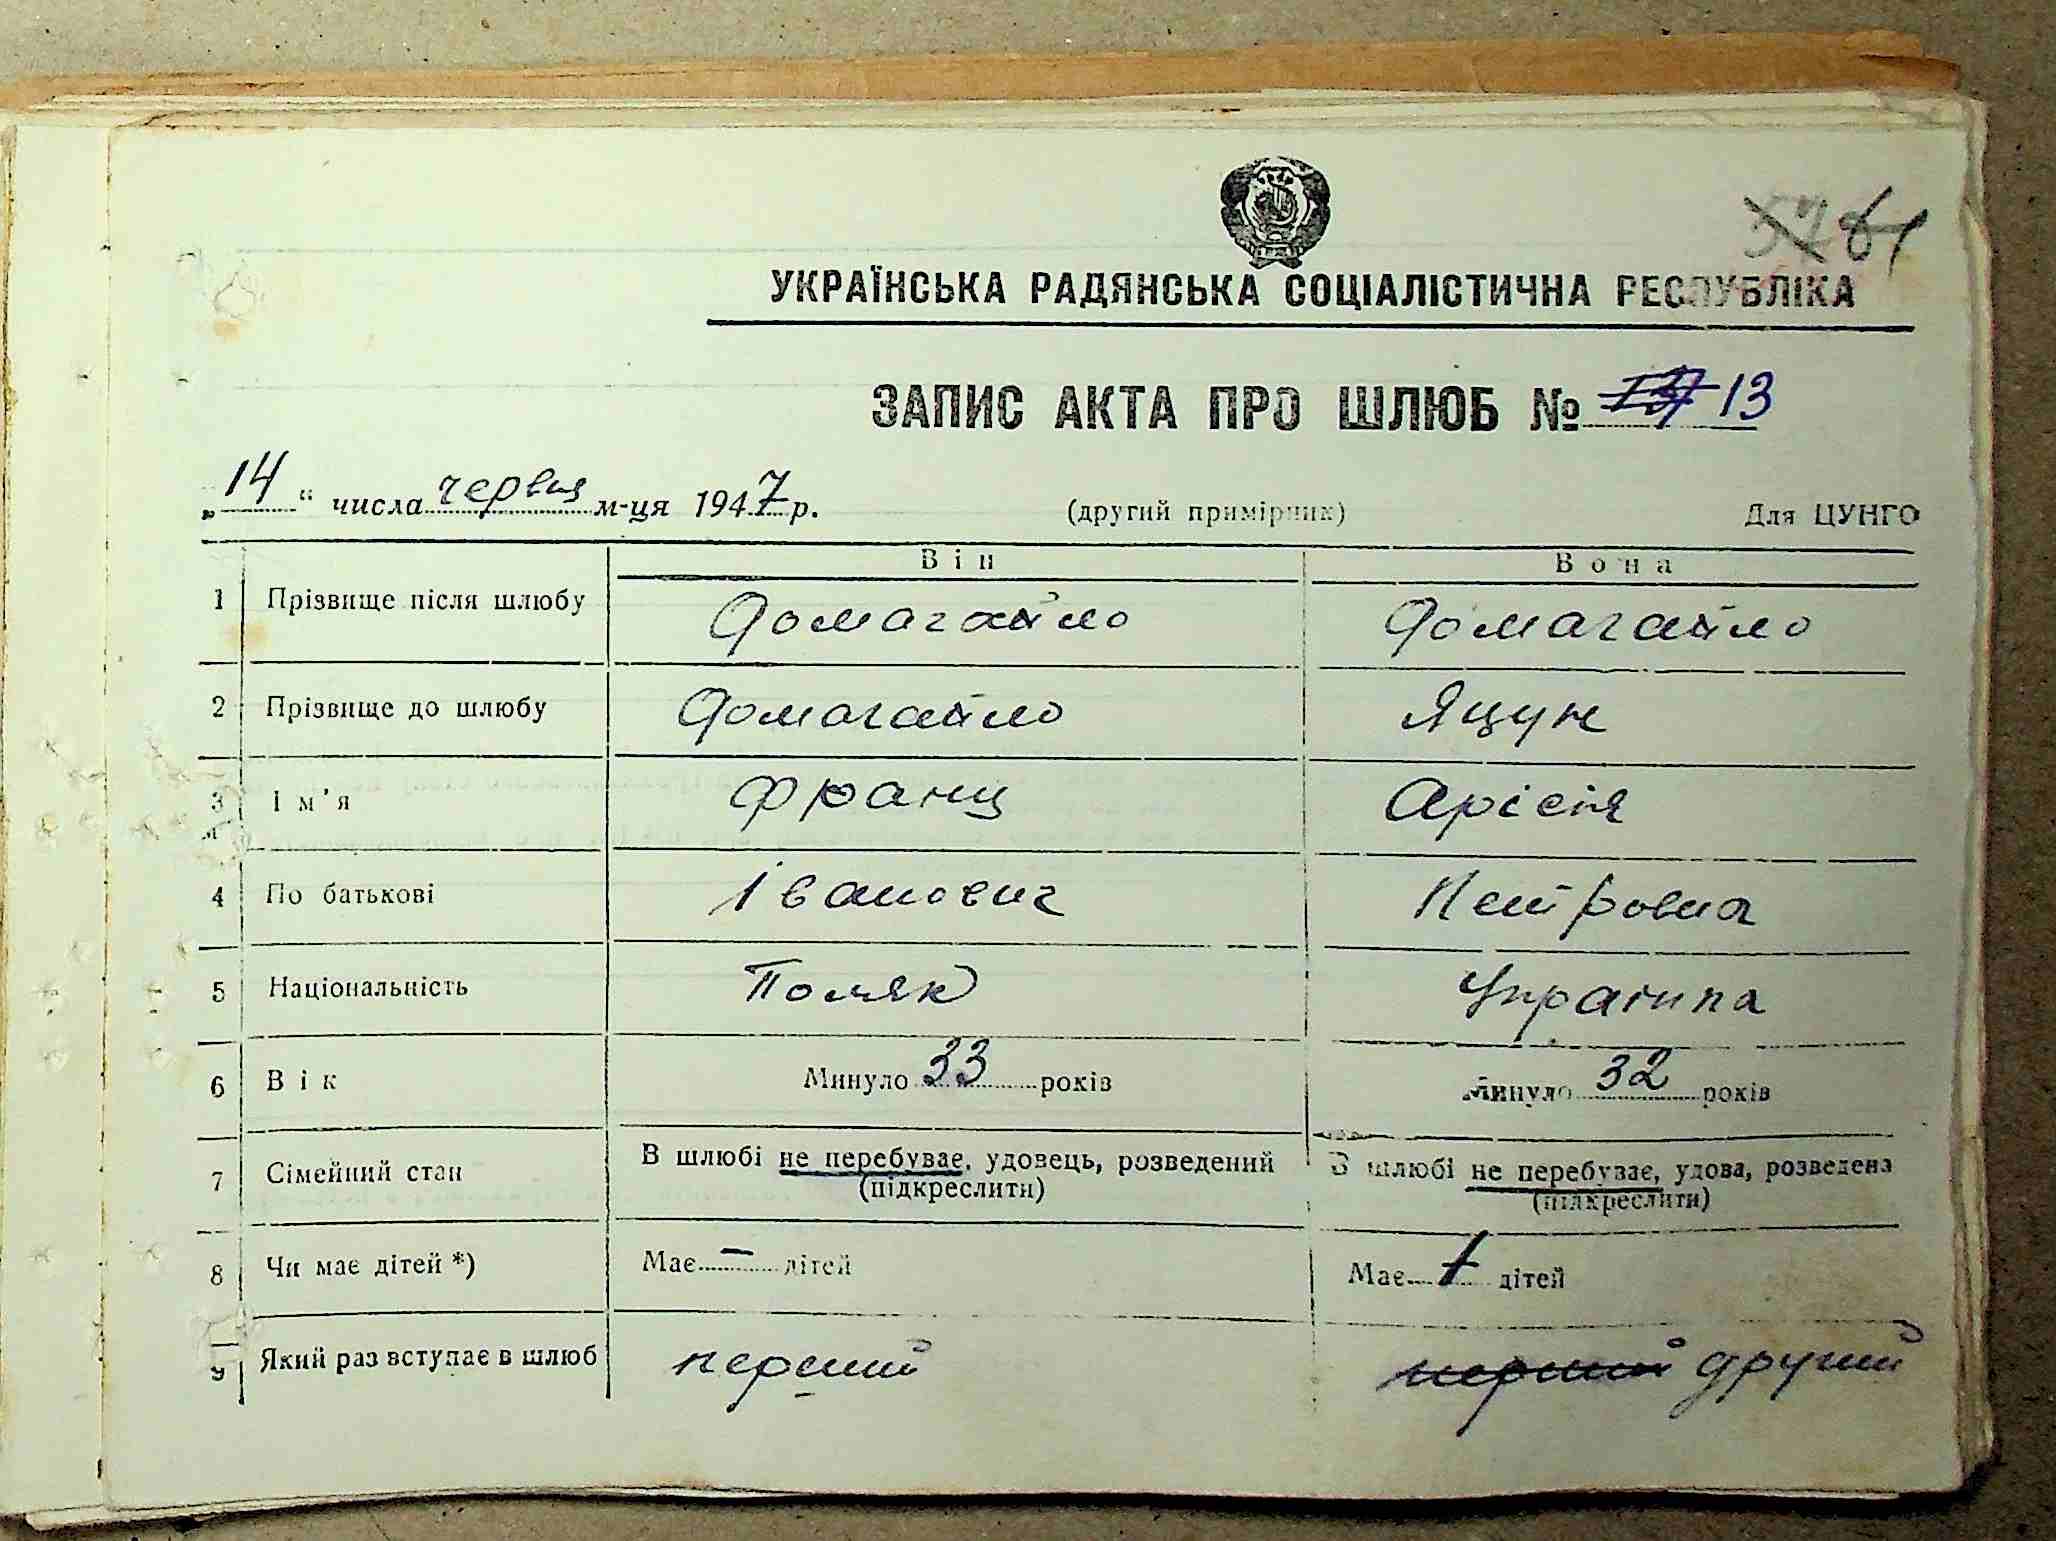 61
УКРАЇНСЬКА РАДЯНСЬКА СОЦІАЛІСТИЧНА РЕСПУБЛІКА
ЗАПИС АКТА ПРО ШЛЮБ № 13
„14“ числа червня м-ця 1947 р. (другий примірник) Для ЦУНГО
Він Вона
1 Прізвище після шлюбу Домагайло Домагайло
2 Прізвище до шлюбу Домагайло Яцун
3 Ім'я Франц Арісія
4 По батькові Іванович Петровна
5 Національність Поляк Украінка
6 Вік Минуло 33 років Минуло 32 років
7 Сімейний стан В шлюбі не перебуває, удовець, розведений В шлюбі не перебуває, удова, розведена
(підкреслити) (підкреслити)
8 Чи має дітей *) Має — дітей Має 1 дітей
9 Який раз вступає в шлюб перший перший другий